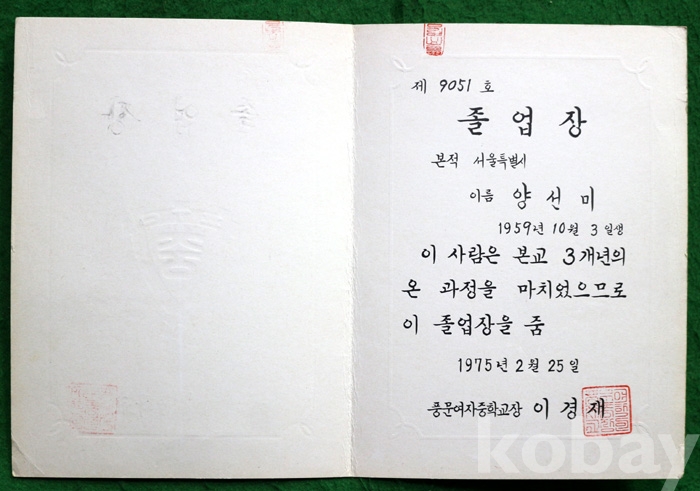 제 9051 호
졸업장
본적 서울특별시
이름 양선미
1959년 10월 3일생
이 사람은 본교 3개년의
온 과정을 마치었으므로
이 졸업장을 줌
1975년 2월 25일
풍문여자중학교장 이경재
kobay